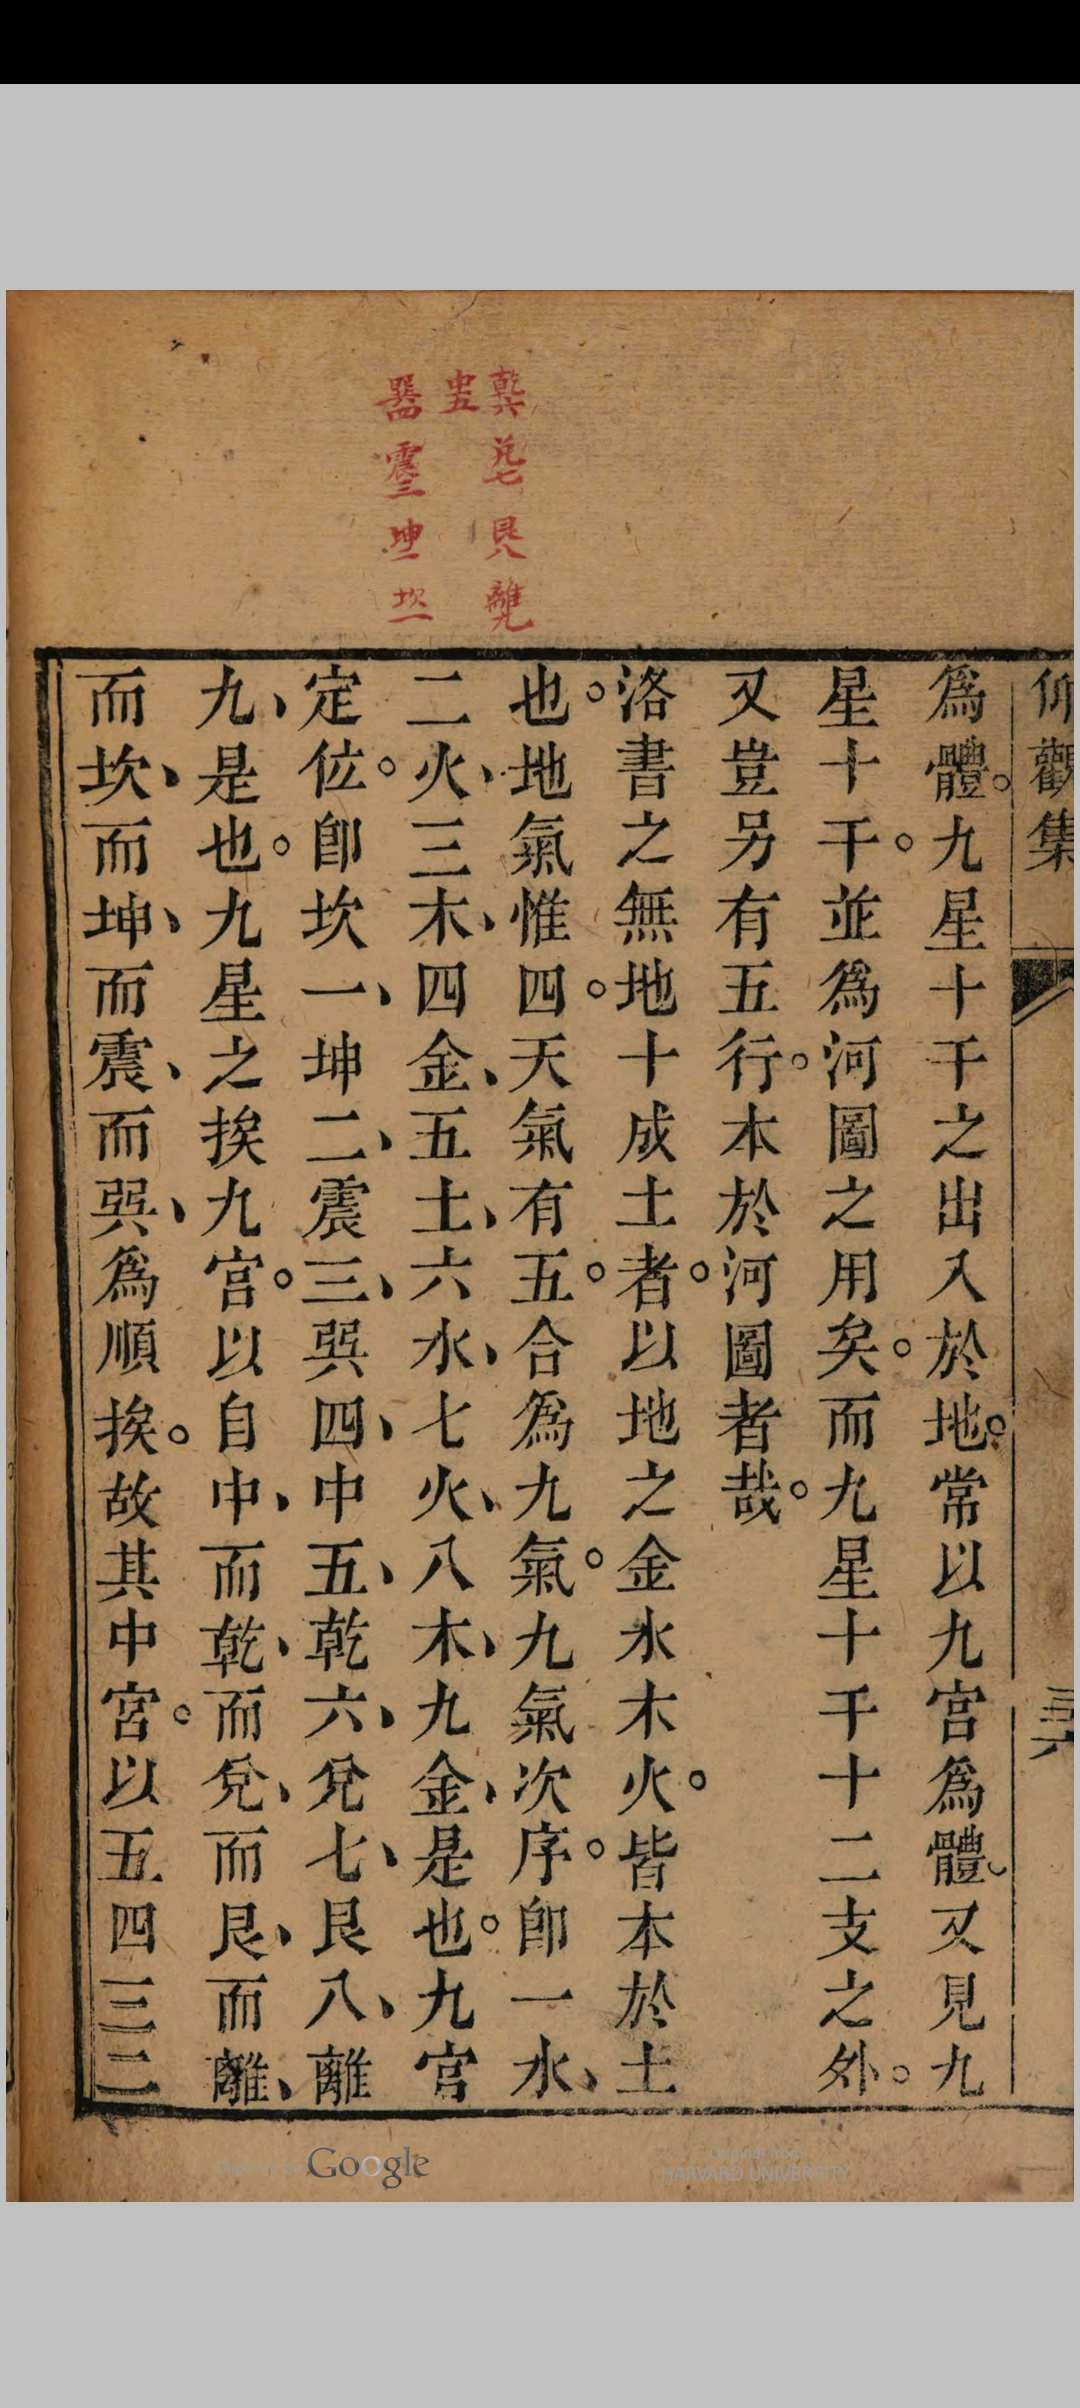 仰觀集
為體。九星十干之出入於地。常以九宮為體。又見九
星十干。並為河圖之用矣。而九星十干十二支之外。
又豈另有五行。本於河圖者哉。
洛書之無地十成土者。以地之金水木火。皆本於土
也。地氣惟四。天氣有五。合為九氣。九氣次序。卽一水、
二火、三木、四金、五土、六水、七火、八木、九金、是也。九宮
定位。卽坎一、坤二、震三、巽四、中五、乾六、兌七、艮八、離
九、是也。九星之挨九宮。以自中、而乾、而兌、而艮、而離、
而坎、而坤、而震、而巽、為順挨。故其中宮。以五四三二
乾六 兌七 艮八 離九
中五
巽四 震三 坤二 坎一
Google
HARVARD UNIVERSITY